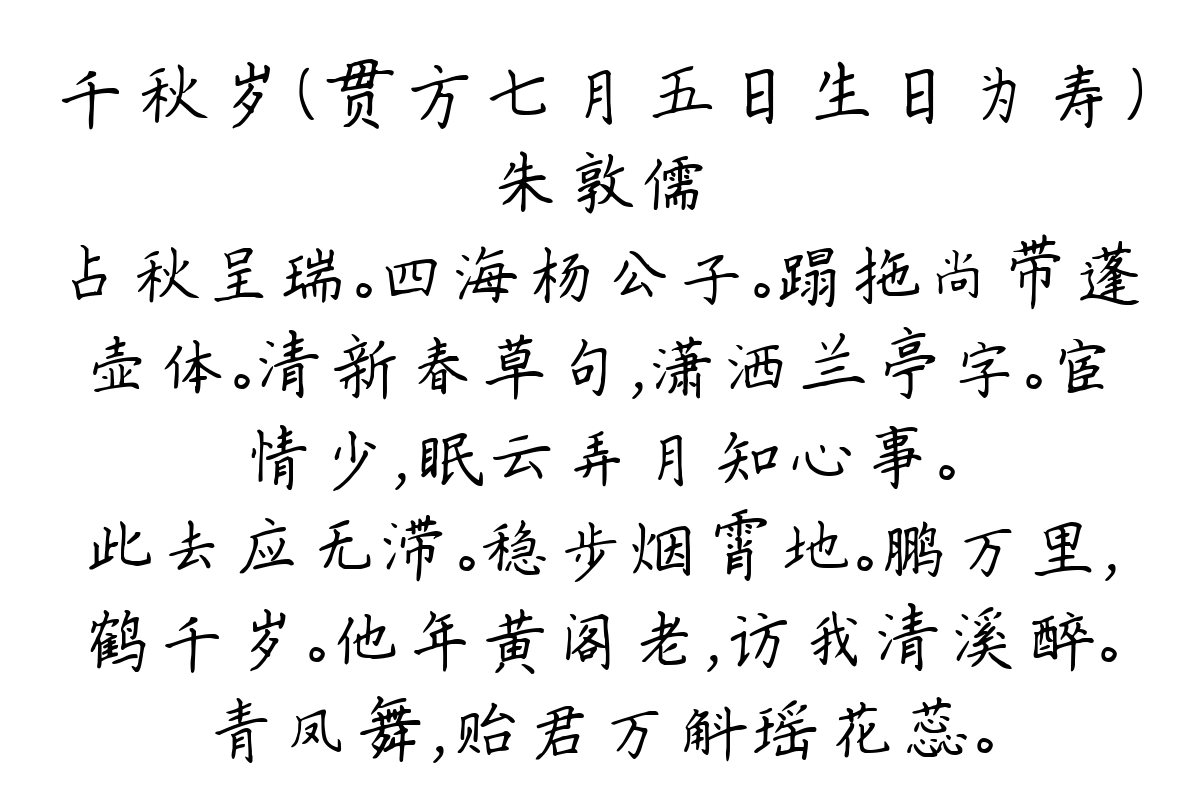 千秋岁(贯方七月五日生日为寿)
朱敦儒
占秋呈瑞。四海杨公子。蹋拖尚带蓬
壶体。清新春草句,潇洒兰亭字。宦
情少,眠云弄月知心事。
此去应无滞。稳步烟霄地。鹏万里,
鹤千岁。他年黄阁老,访我清溪醉。
青凤舞,贻君万斛瑶花蕊。